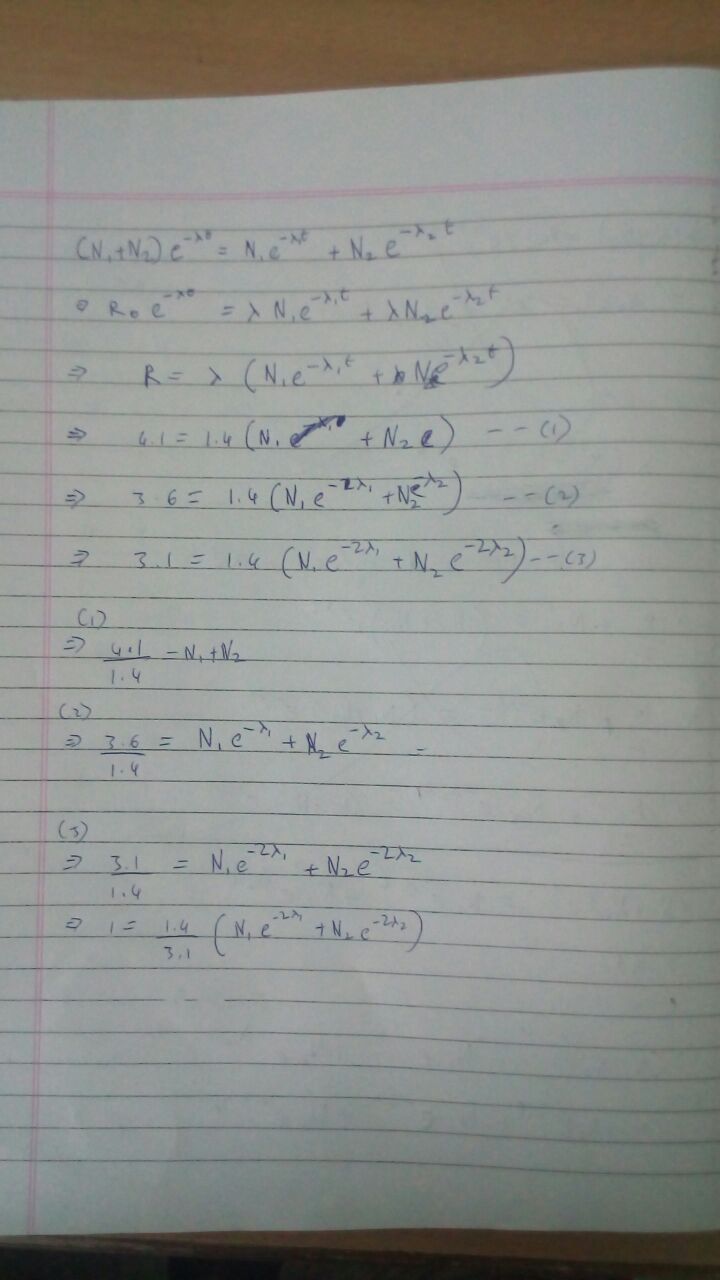 (N₁+N₂) e^{-λt} = N₁e^{-λt} + N₂ e^{-λ₂t}
R₀ e^{-λt} = λ N₁e^{-λ₁t} + λN₂e^{-λ₂t}
⇒ R = λ (N₁e^{-λ₁t} + N₂e^{-λ₂t})
⇒ 4.1 = 1.4 (N₁ + N₂) -- (1)
⇒ 3.6 = 1.4 (N₁e^{-λ₁} + N₂e^{-λ₂}) -- (2)
⇒ 3.1 = 1.4 (N₁e^{-2λ₁} + N₂e^{-2λ₂}) -- (3)
(1)
⇒ 4.1/1.4 = N₁+N₂
(2)
⇒ 3.6/1.4 = N₁e^{-λ₁} + N₂e^{-λ₂}
(3)
⇒ 3.1/1.4 = N₁e^{-2λ₁} + N₂e^{-2λ₂}
⇒ 1 = 1.4/3.1 (N₁e^{-2λ₁} + N₂e^{-2λ₂})